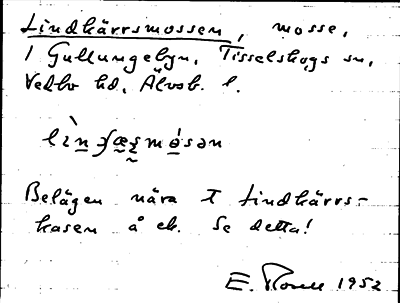 Lindkärrsmossen, mosse,
i Gullungebyn, Tisselskogs sn,
Vedbo hd, Älvsb. l.
Belägen nära T Lindkärrs-
kasen å ek. Se detta!
E. 1952